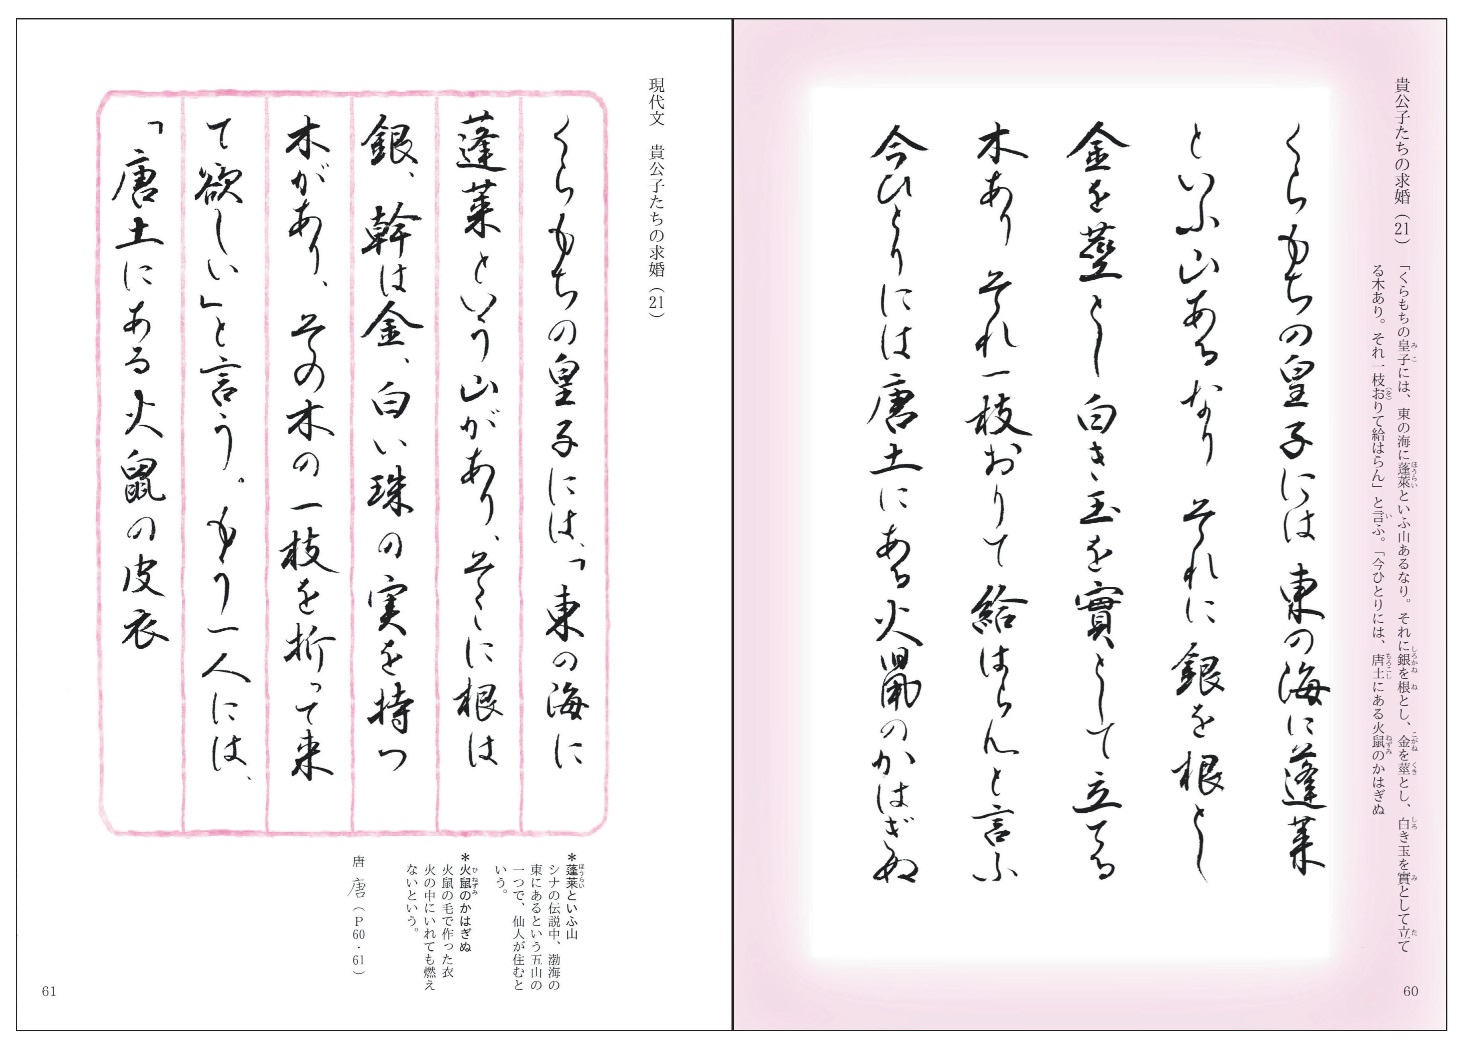 貴公子たちの求婚（21）
「くらもちの皇子には、東の海に蓬萊といふ山あるなり。それに銀を根とし、金を莖とし、白き玉を實として立て
る木あり。それ一枝おりて給はらん」と言ふ。「今ひとりには、唐土にある火鼠のかはぎぬ
くらもちの皇子には東の海に蓬萊
といふ山あるなり それに銀を根とし
金を莖とし 白き玉を實として立てる
木あり それ一枝おりて給はらんと言ふ
今ひとりには唐土にある火鼠のかはぎぬ
60
現代文 貴公子たちの求婚（21）
くらもちの皇子には、「東の海に
蓬萊という山があり、そこに根は
銀、幹は金、白い珠の実を持つ
木があり、その木の一枝を折って来
て欲しい」と言う。もう一人には、
「唐土にある火鼠の皮衣
＊蓬萊といふ山
シナの伝説中、渤海の
東にあるという五山の
一つで、仙人が住むと
いう。
＊火鼠のかはぎぬ
火鼠の毛で作った衣
火の中にいれても燃え
ないという。
唐 唐（P60・61）
61